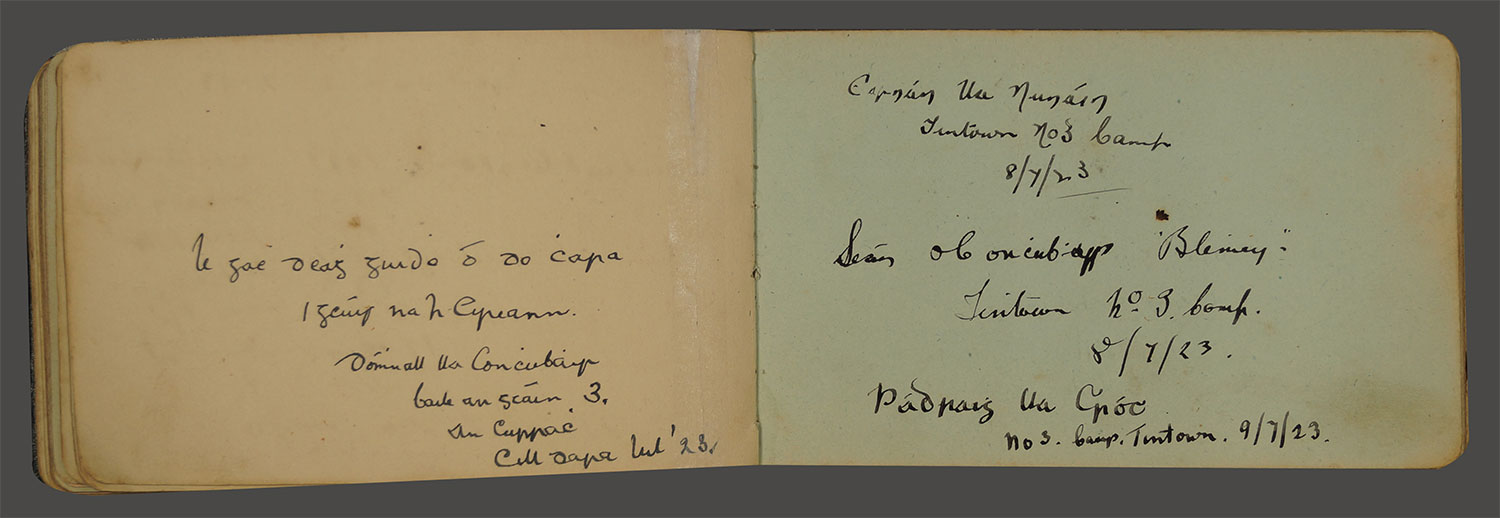 le gaċ deaġ guiḋe ó do ċara
i gcúis na hÉireann.
Dómnall Ua Concubair
baile an stáin 3.
An Currac
Cill dara Iul '23.
Ua Nunáin
Tintown No 3 Camp
8/7/23
Seán "Blimey"
Tintown No 3. Camp.
8/7/23.
Pádraig Ua
No 3. Camp. Tintown. 9/7/23.